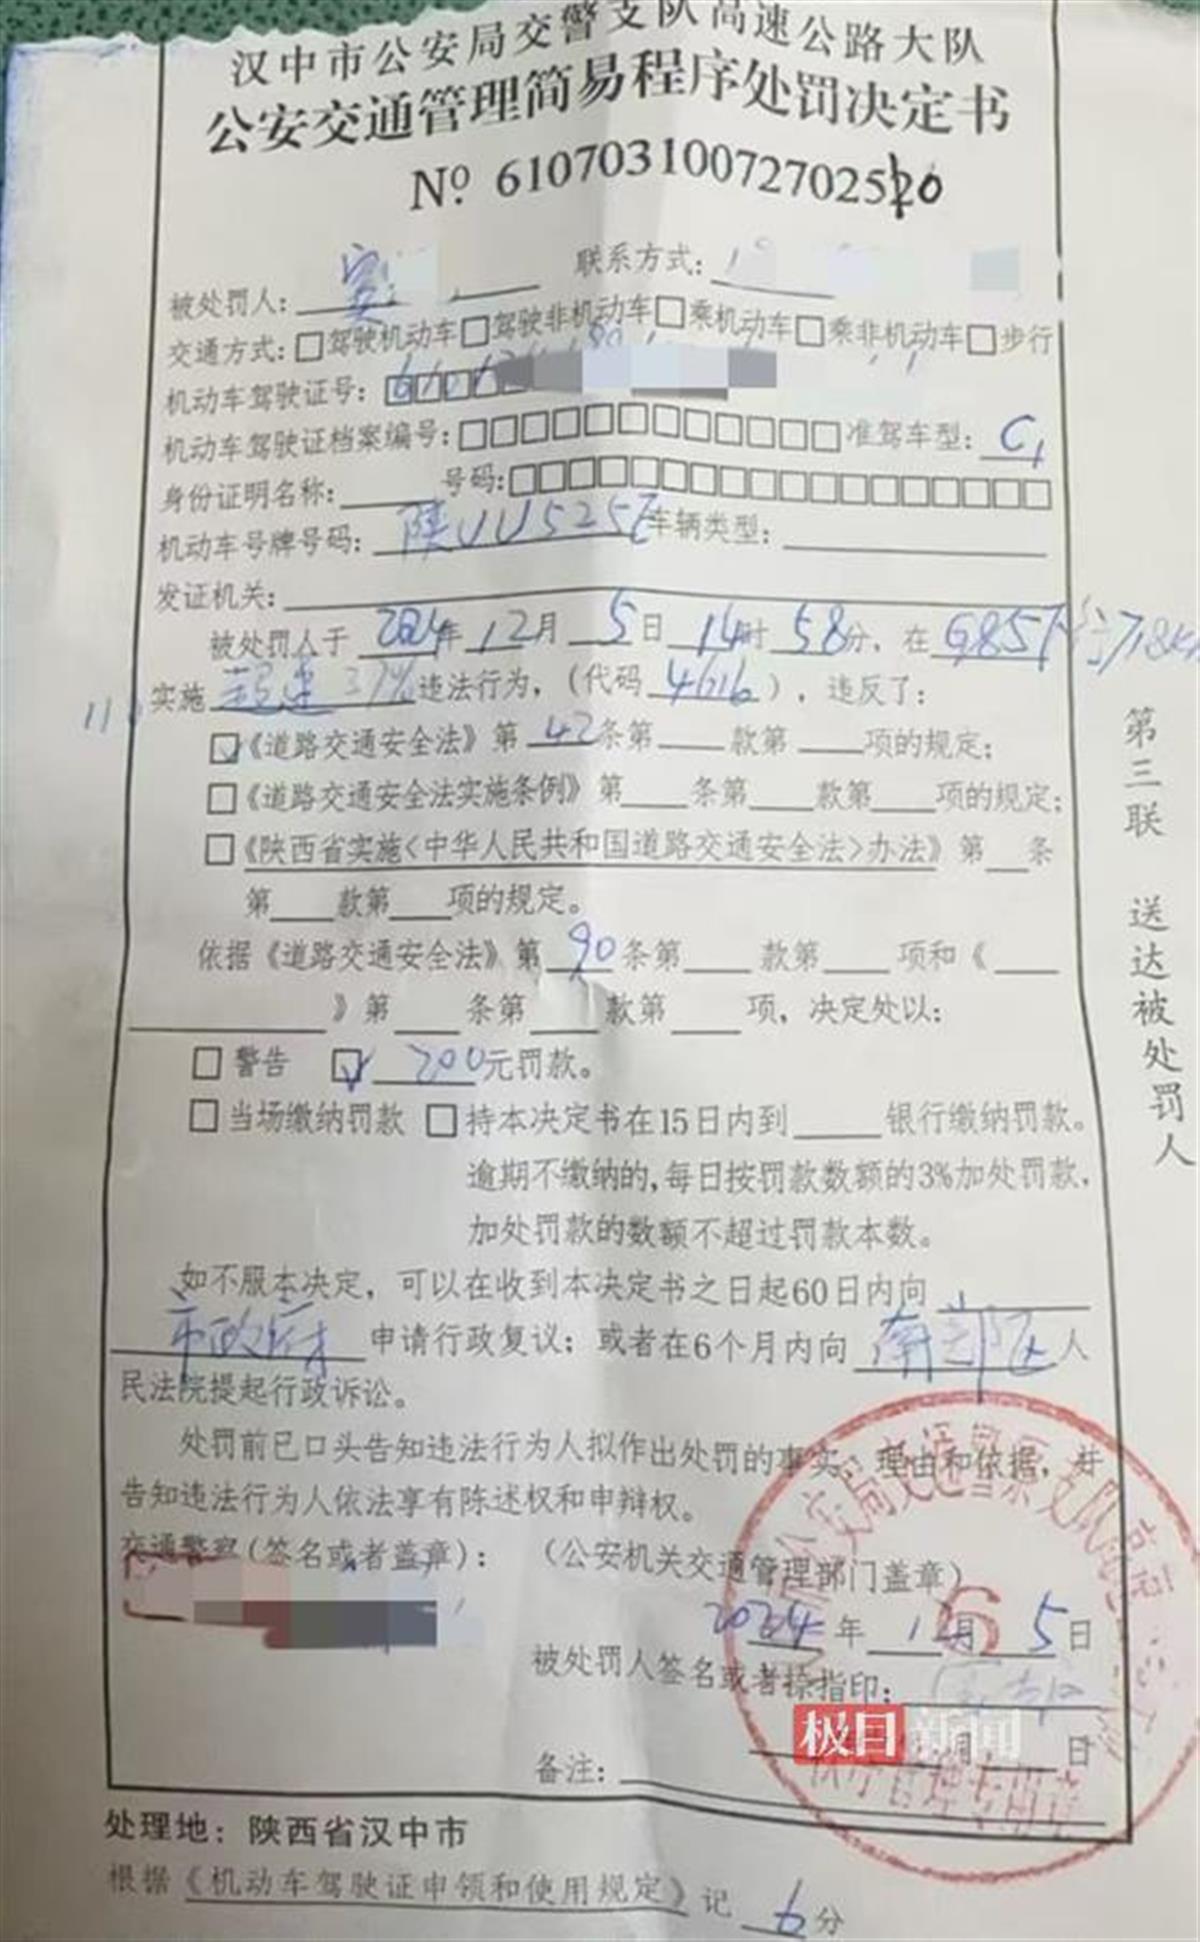 汉中市公安局交警支队高速公路大队
公安交通管理简易程序处罚决定书
№ 6107031007270252 20
被处罚人: 联系方式:
交通方式:□驾驶机动车□驾驶非机动车□乘机动车□乘非机动车□步行
机动车驾驶证号:
机动车驾驶证档案编号: 准驾车型: C1
身份证明名称: 号码:
机动车号牌号码: 陕UU525E 车辆类型:
发证机关:
被处罚人于 2024 年 12 月 5 日 14 时 58 分, 在 G85下行718K
实施 超速37% 违法行为,(代码 4616 ), 违反了:
☑《道路交通安全法》第 42 条第 款第 项的规定;
□《道路交通安全法实施条例》第 条第 款第 项的规定;
□《陕西省实施<中华人民共和国道路交通安全法>办法》第 条
第 款第 项的规定。
依据《道路交通安全法》第 90 条第 款第 项和《
》第 条第 款第 项, 决定处以:
□ 警告 ☑ 200 元罚款。
□ 当场缴纳罚款 □ 持本决定书在15日内到 银行缴纳罚款。
逾期不缴纳的,每日按罚款数额的3%加处罚款,
加处罚款的数额不超过罚款本数。
如不服本决定, 可以在收到本决定书之日起60日内向
市政府 申请行政复议; 或者在6个月内向 南郑区 人
民法院提起行政诉讼。
处罚前已口头告知违法行为人拟作出处罚的事实、理由和依据, 并
告知违法行为人依法享有陈述权和申辩权。
交通警察(签名或者盖章): (公安机关交通管理部门盖章)
2024 年 12 月 5 日
被处罚人签名或者捺指印:
极目新闻 月 日
备注:
处理地: 陕西省汉中市
根据《机动车驾驶证申领和使用规定》记 6 分
第三联 送达被处罚人